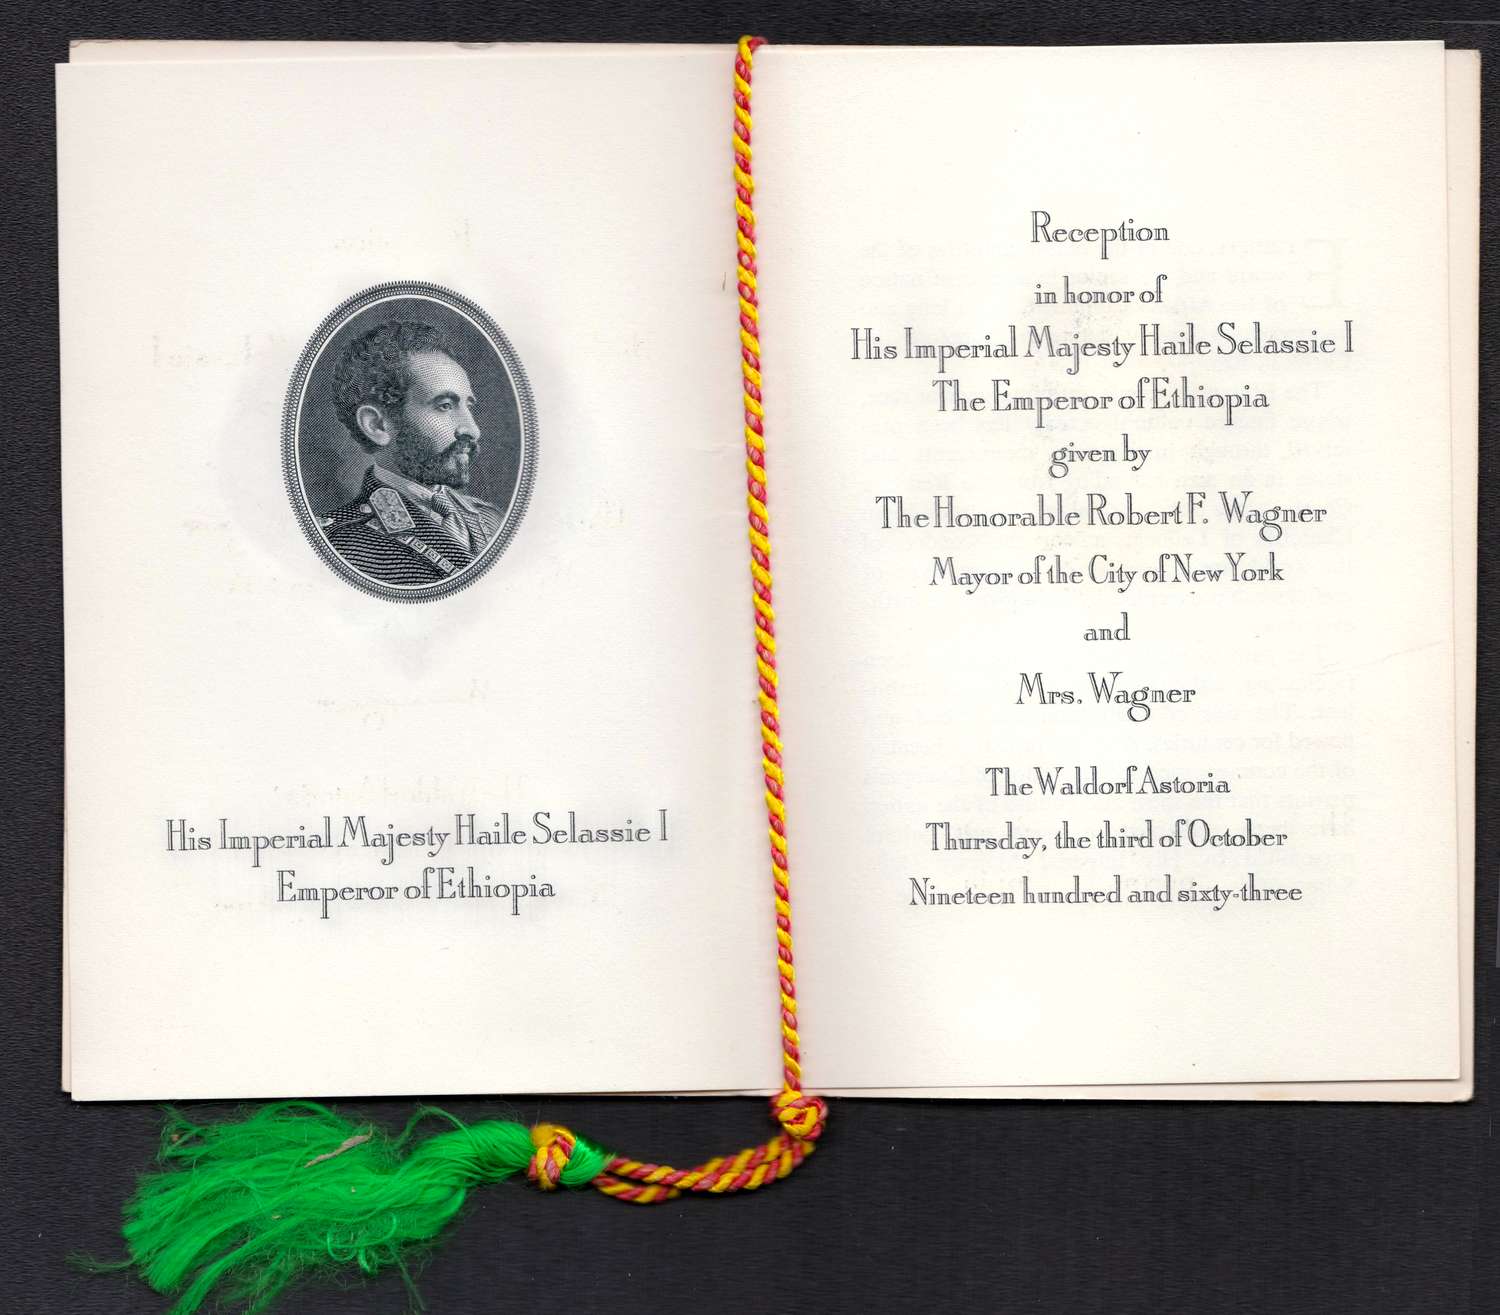 His Imperial Majesty Haile Selassie I
Emperor of Ethiopia
Reception
in honor of
His Imperial Majesty Haile Selassie I
The Emperor of Ethiopia
given by
The Honorable Robert F. Wagner
Mayor of the City of New York
and
Mrs. Wagner
The Waldorf Astoria
Thursday, the third of October
Nineteen hundred and sixty-three